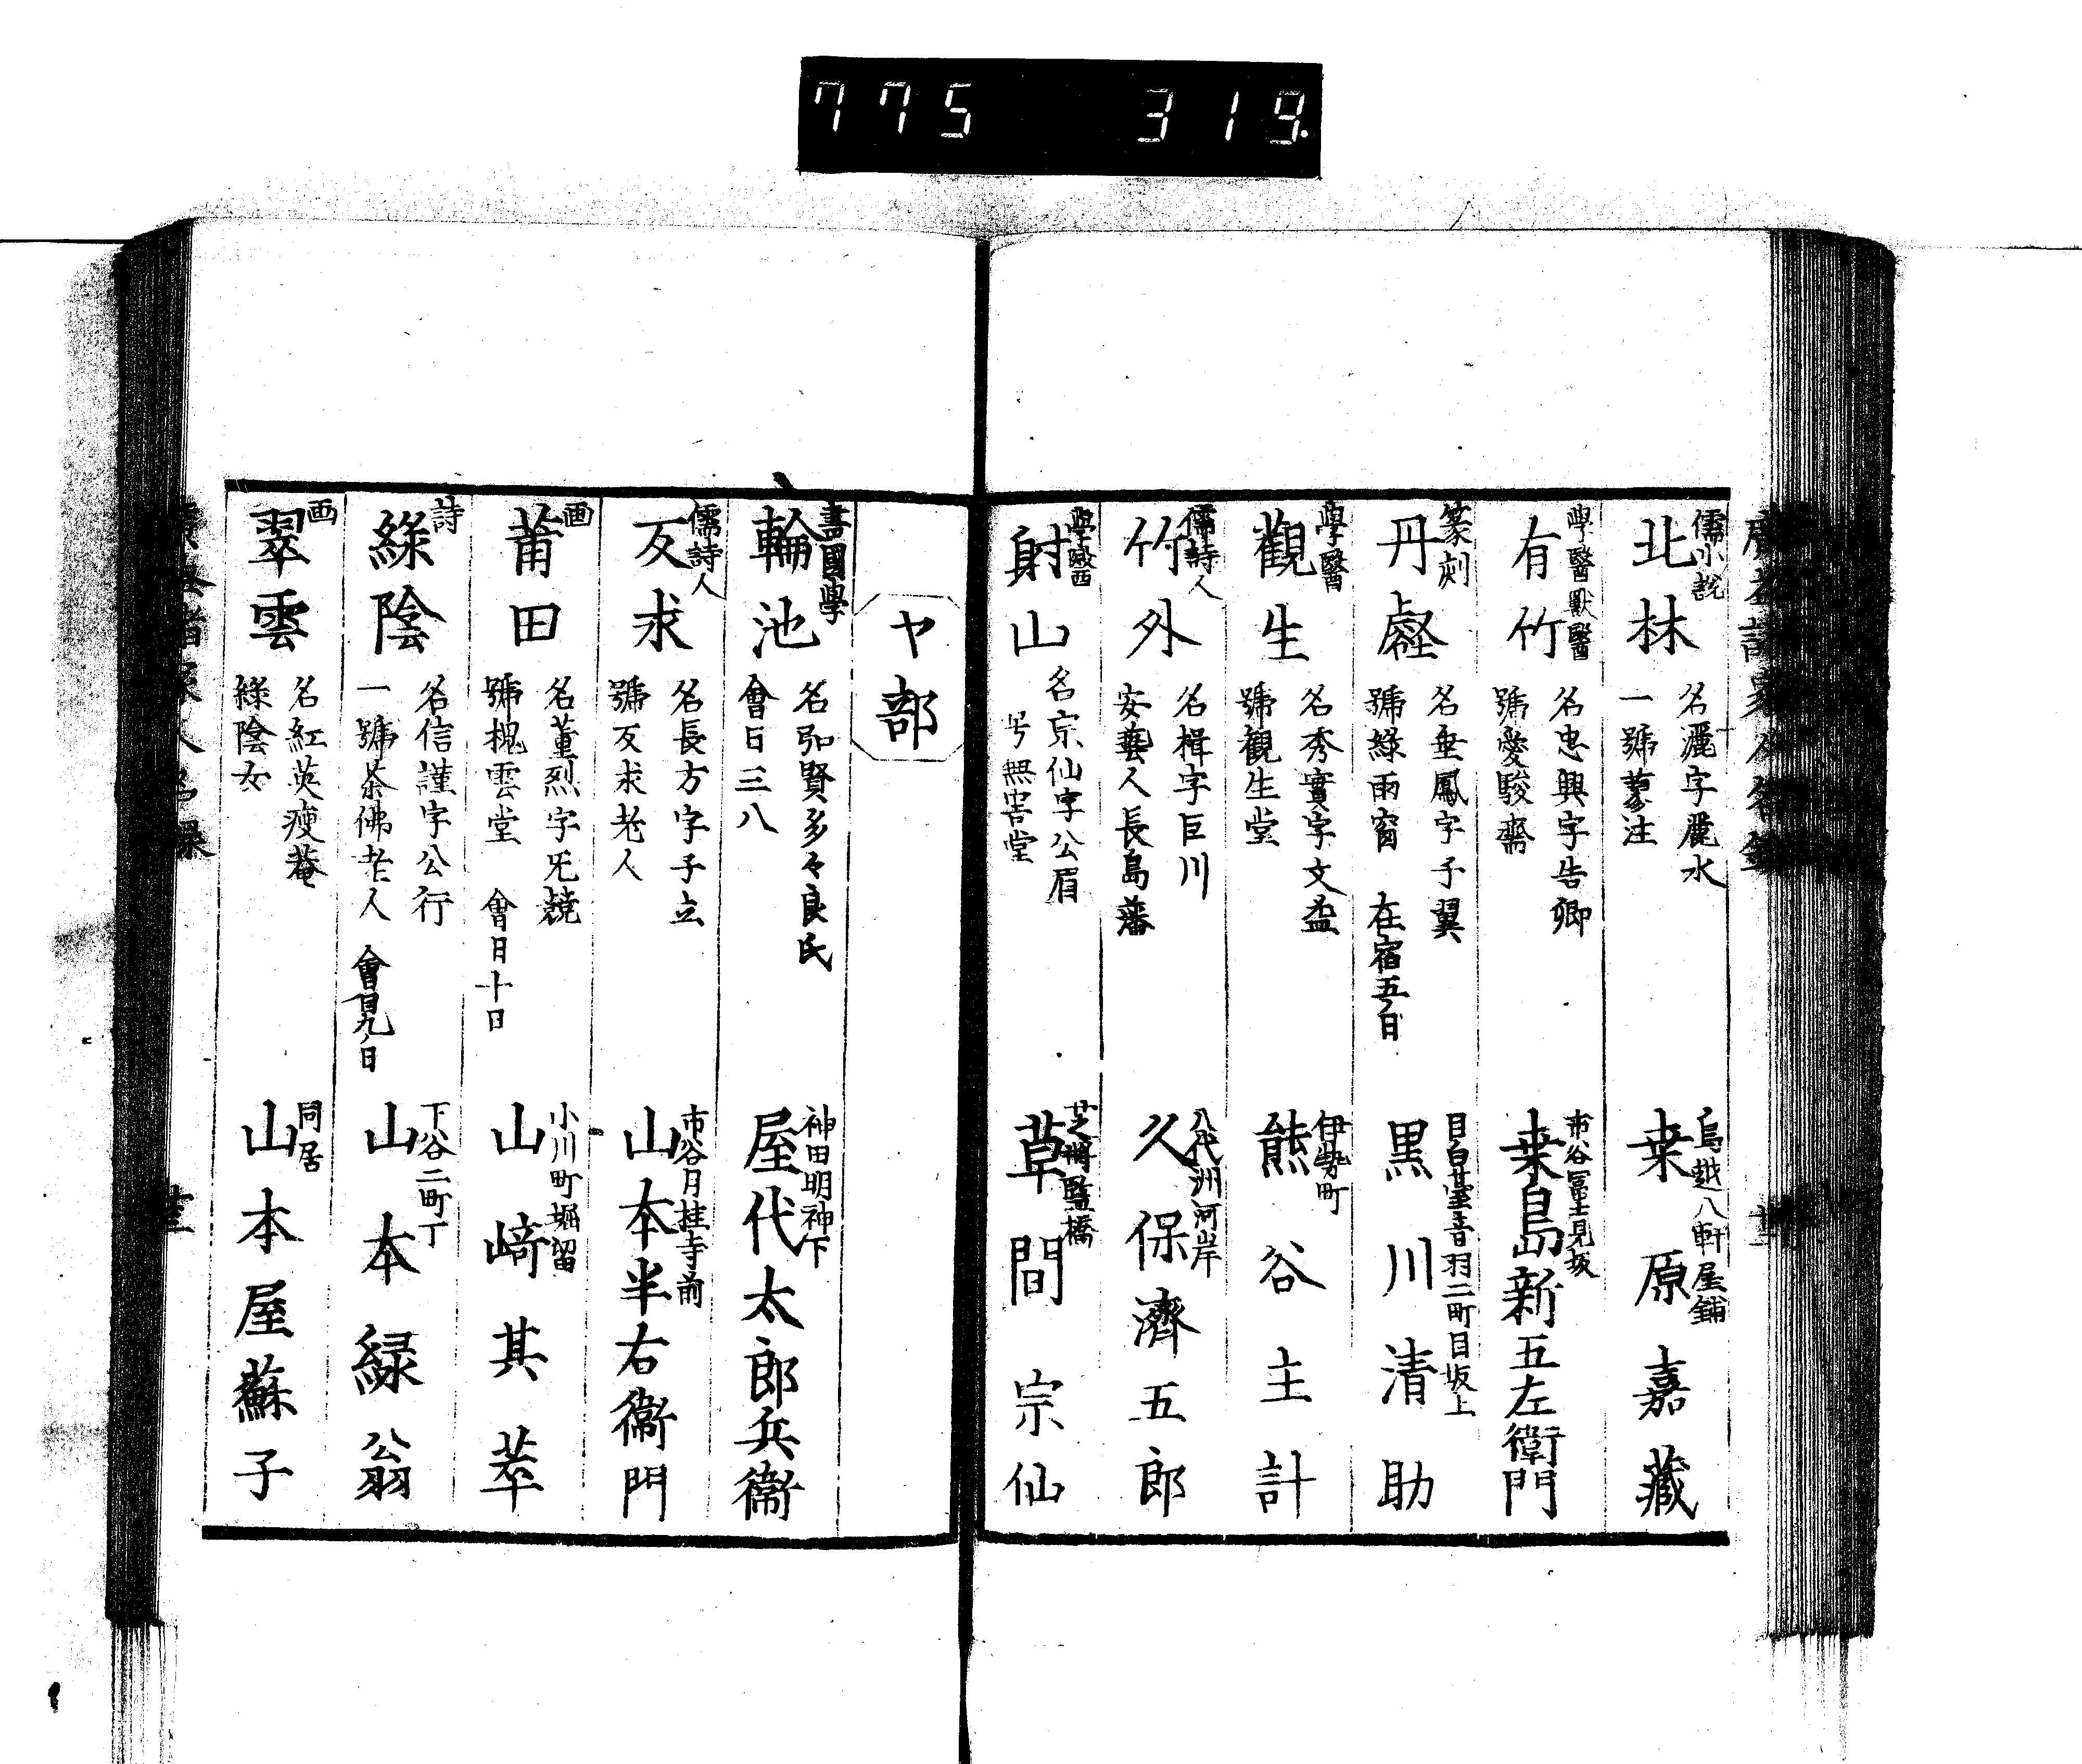 775 319.
儒小説
北林
名灑字麗水
一號蒙注
鳥越八軒屋鋪
桒原嘉藏
學醫獸醫
有竹
名忠興字告卿
號愛駿齋
市谷冨士見坂
桒島新五左衛門
篆刻
丹
名垂鳳字子翼
號綠雨窗 在宿五ノ日
目白臺音羽二町目坂上
黒川清助
學醫
觀生
名秀實字文盈
號觀生堂
伊勢町
熊谷主計
儒詩人
竹外
名楫字巨川
安藝人長島藩
八代洲河岸
久保濟五郎
學醫西
射山
名宗仙字公眉
号無害堂
芝將監橋
草間宗仙
ヤ部
書國學
輪池
名弘賢多々良氏
會日三八
神田明神下
屋代太郎兵衞
儒詩人
反求
名長方字子立
號反求老人
市谷月桂寺前
山本半右衞門
画
莆田
名董烈字
號槐雲堂 會月十日
小川町堀留
山﨑其萃
詩
綠陰
名信謹字公行
一號茶佛老人 會日九ノ日
下谷二町丁
山本緑翁
画
翠雲
名紅英瘦菴
綠陰女
同居
山本屋蘇子